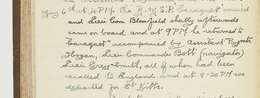 6th at 4 PM the R.Y.S.P. "Paragnet" arrived
and Lieut Com Blomfield shortly afterwards
came on board and at 9 PM he returned to
accompanied by Assistant Paymr
and Lieut Commander Bott (navigator)
Lieut Smith, all of whom had been
recalled to England and at 8-20 PM we
departed for St Kitts.